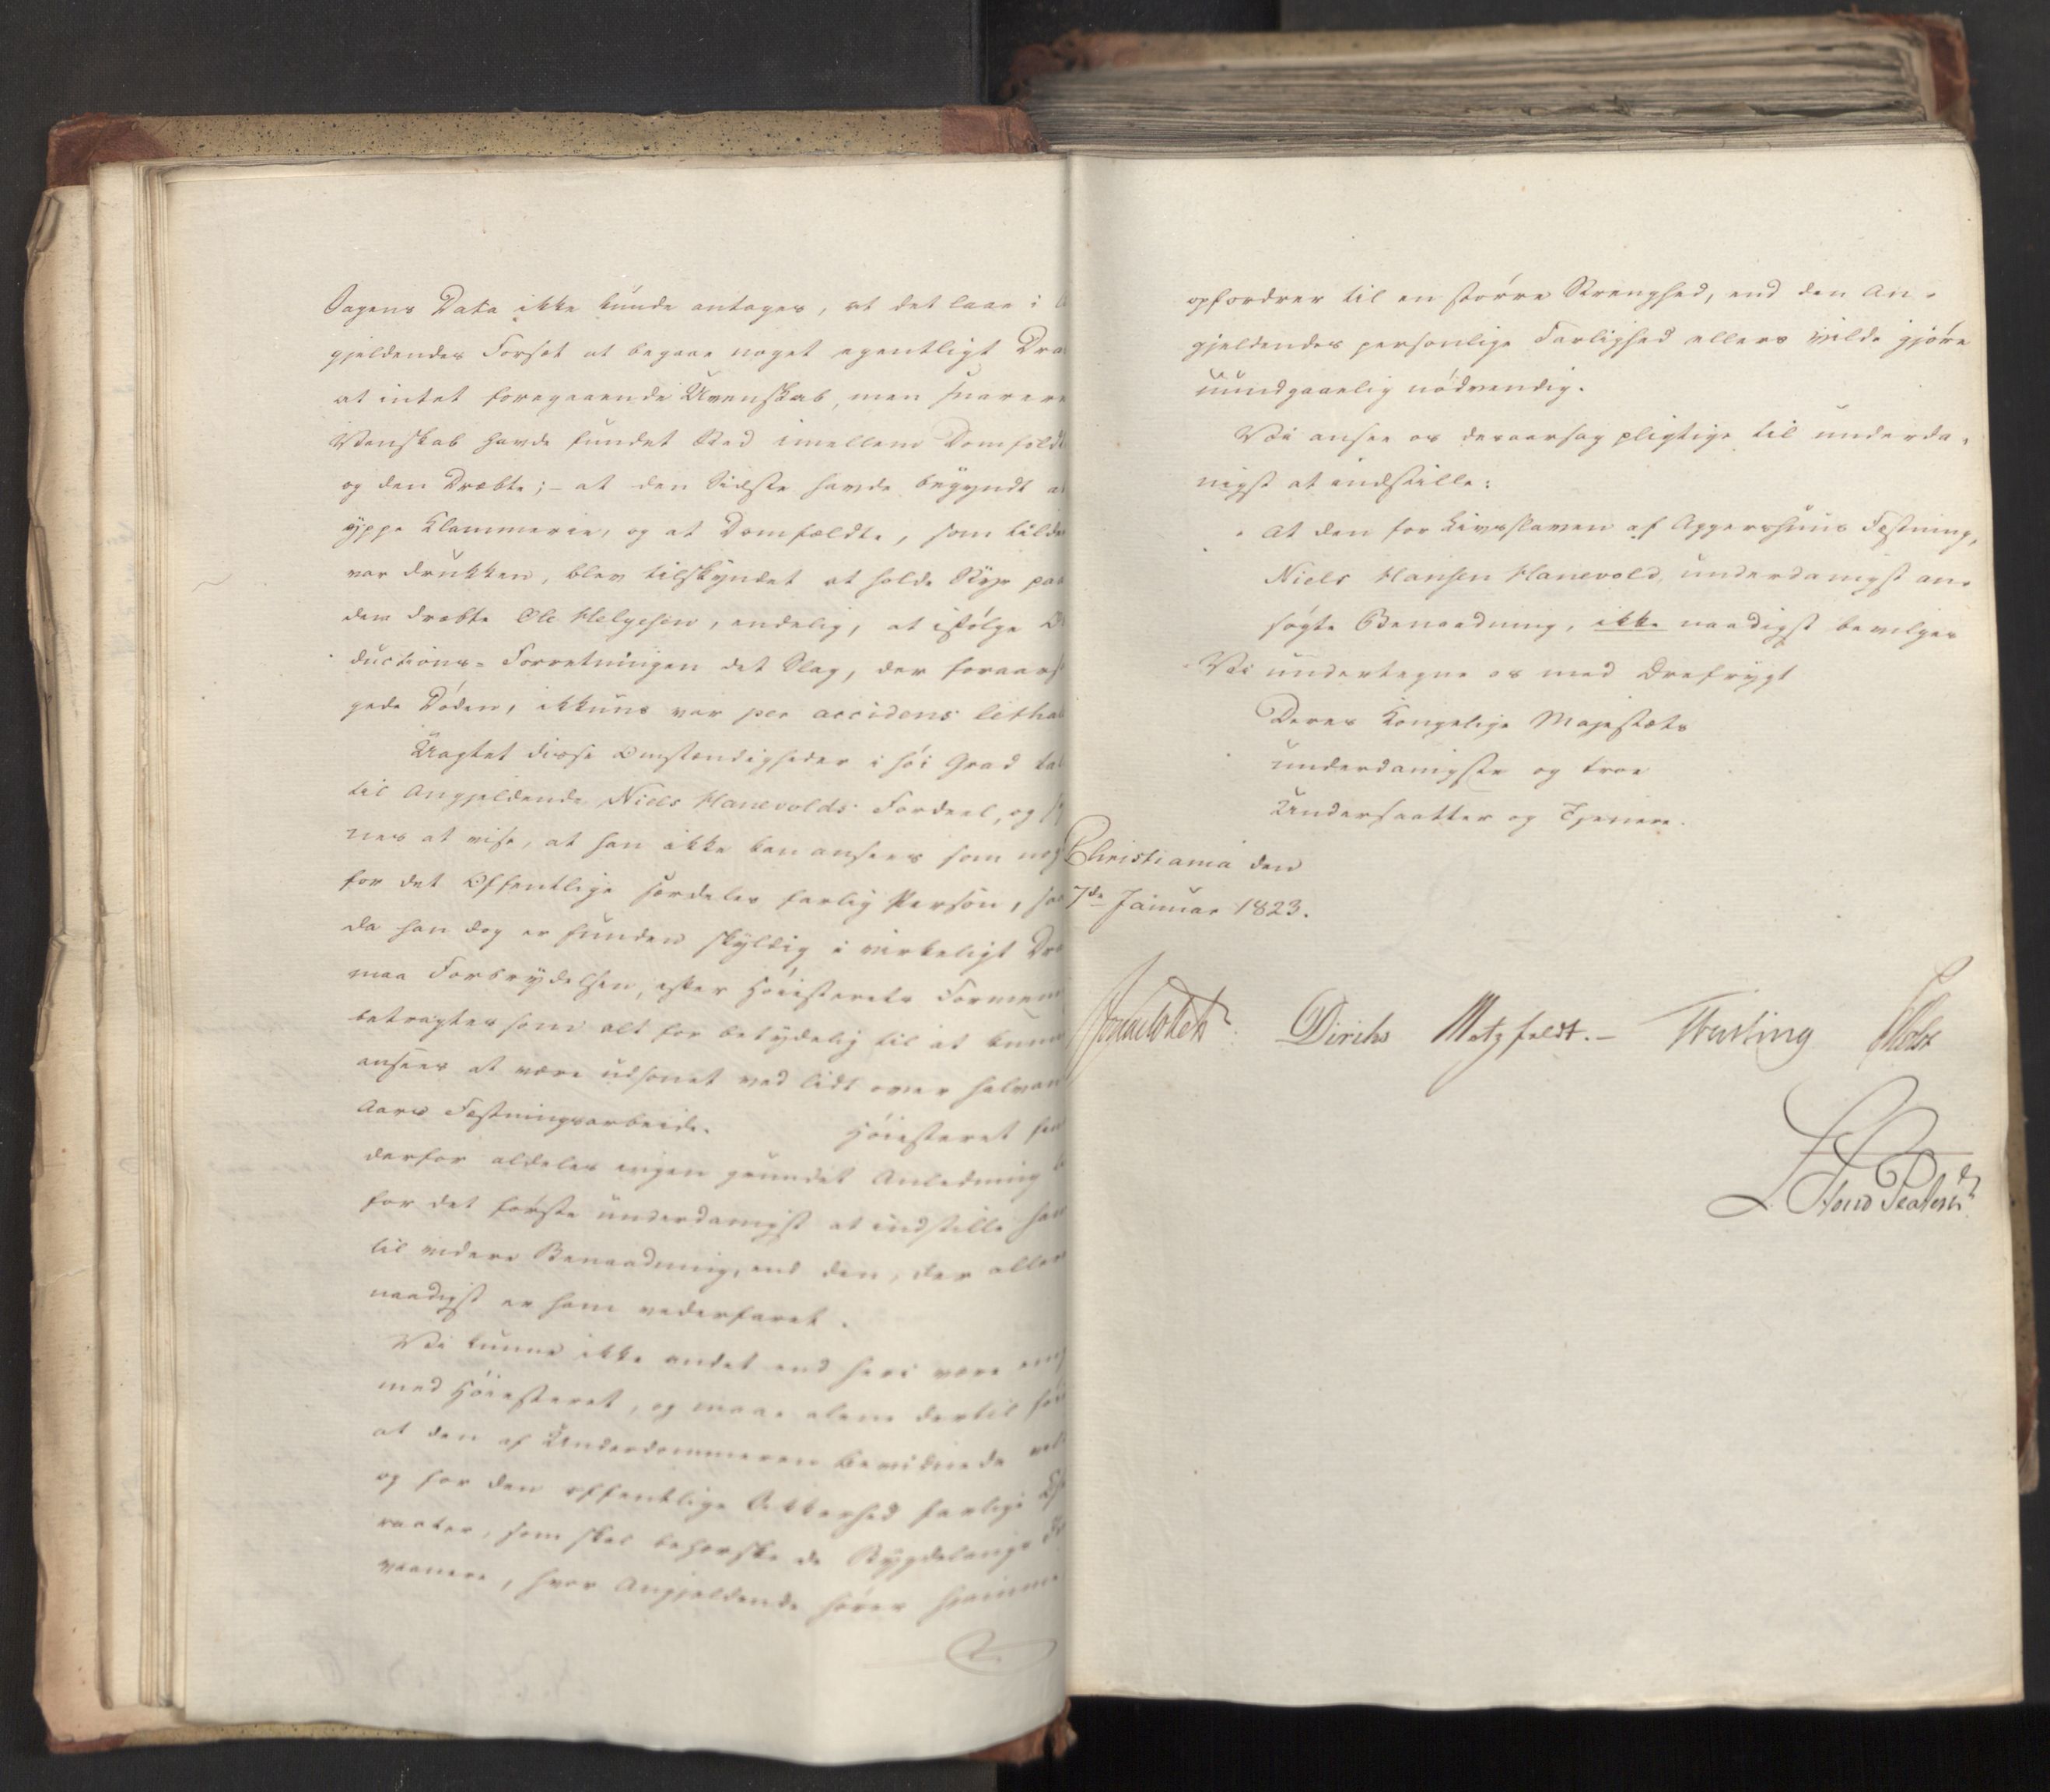 Sagens Data ikke kunde antages, at det laae i
gjeldendes Forsæt at begaae noget egentligt Dra
at intet foregaaende Uvenskab, men snarere
Venskab havde fundet Sted imellem Domfældt
og den Dræbte; - at den Sidste havde begyndt a
yppe Klammerie, og at Domfældte, som tilde
var drukken, blev tilskyndet at holde Styr paa
den dræbte Ole Helgesen, endelig, at ifølge
ductions-Forretningen det Slag, der foraars
gede Døden, ikkuns var per accidens lethal
Uagtet disse Omstændigheder i høi Grad tal
til Angjeldende Niels Hanevolds Fordeel, og sy
nes at vise, at han ikke kan ansees som nog
for det Offentlige særdeles farlig Person, saa
da han dog er funden skyldig i virkeligt Dra
maa Forbrydelsen, efter Høiesterets Formeni
betragtes som alt for betydelig til at kunn
ansees at være udsonet ved lidt over halvan
Aars Fæstningsarbeide. Høiesteret fan
derfor aldeles ingen grundet Anledning
for det første underdanigst at indstille ham
til videre Benaadning, end den, der aller
naadigst er ham vederfaret.
Vi kunne ikke andet end heri være enig
med Høiesteret, og maae alene dertil føie
at den af Underdommeren bevidnede
og for den offentlige Sikkerhed farlige
racter, som skal beherske de Bygdelaugs
vaanere, hvor Angjeldende hører hjemme
opfordrer til en større Strenghed, end den An-
gjeldendes personlige Farlighed ellers vilde gjøre
uundgaaelig nødvendig.
Vi ansee os desaarsag pligtige til underda-
nigst at indstille:
At den for Livsslaven af Aggershuus Fæstning,
Niels Hansen Hanevold, underdanigst an-
søgte Benaadning, ikke naadigst bevilges
Vi undertegne os med Ærefrygt
Deres Kongelige Majestæts
underdanigste og troe
Undersaatter og Tjenere.
Christiania den
7de Januar 1823.
Diriks Motzfeldt. - Treschow Holst